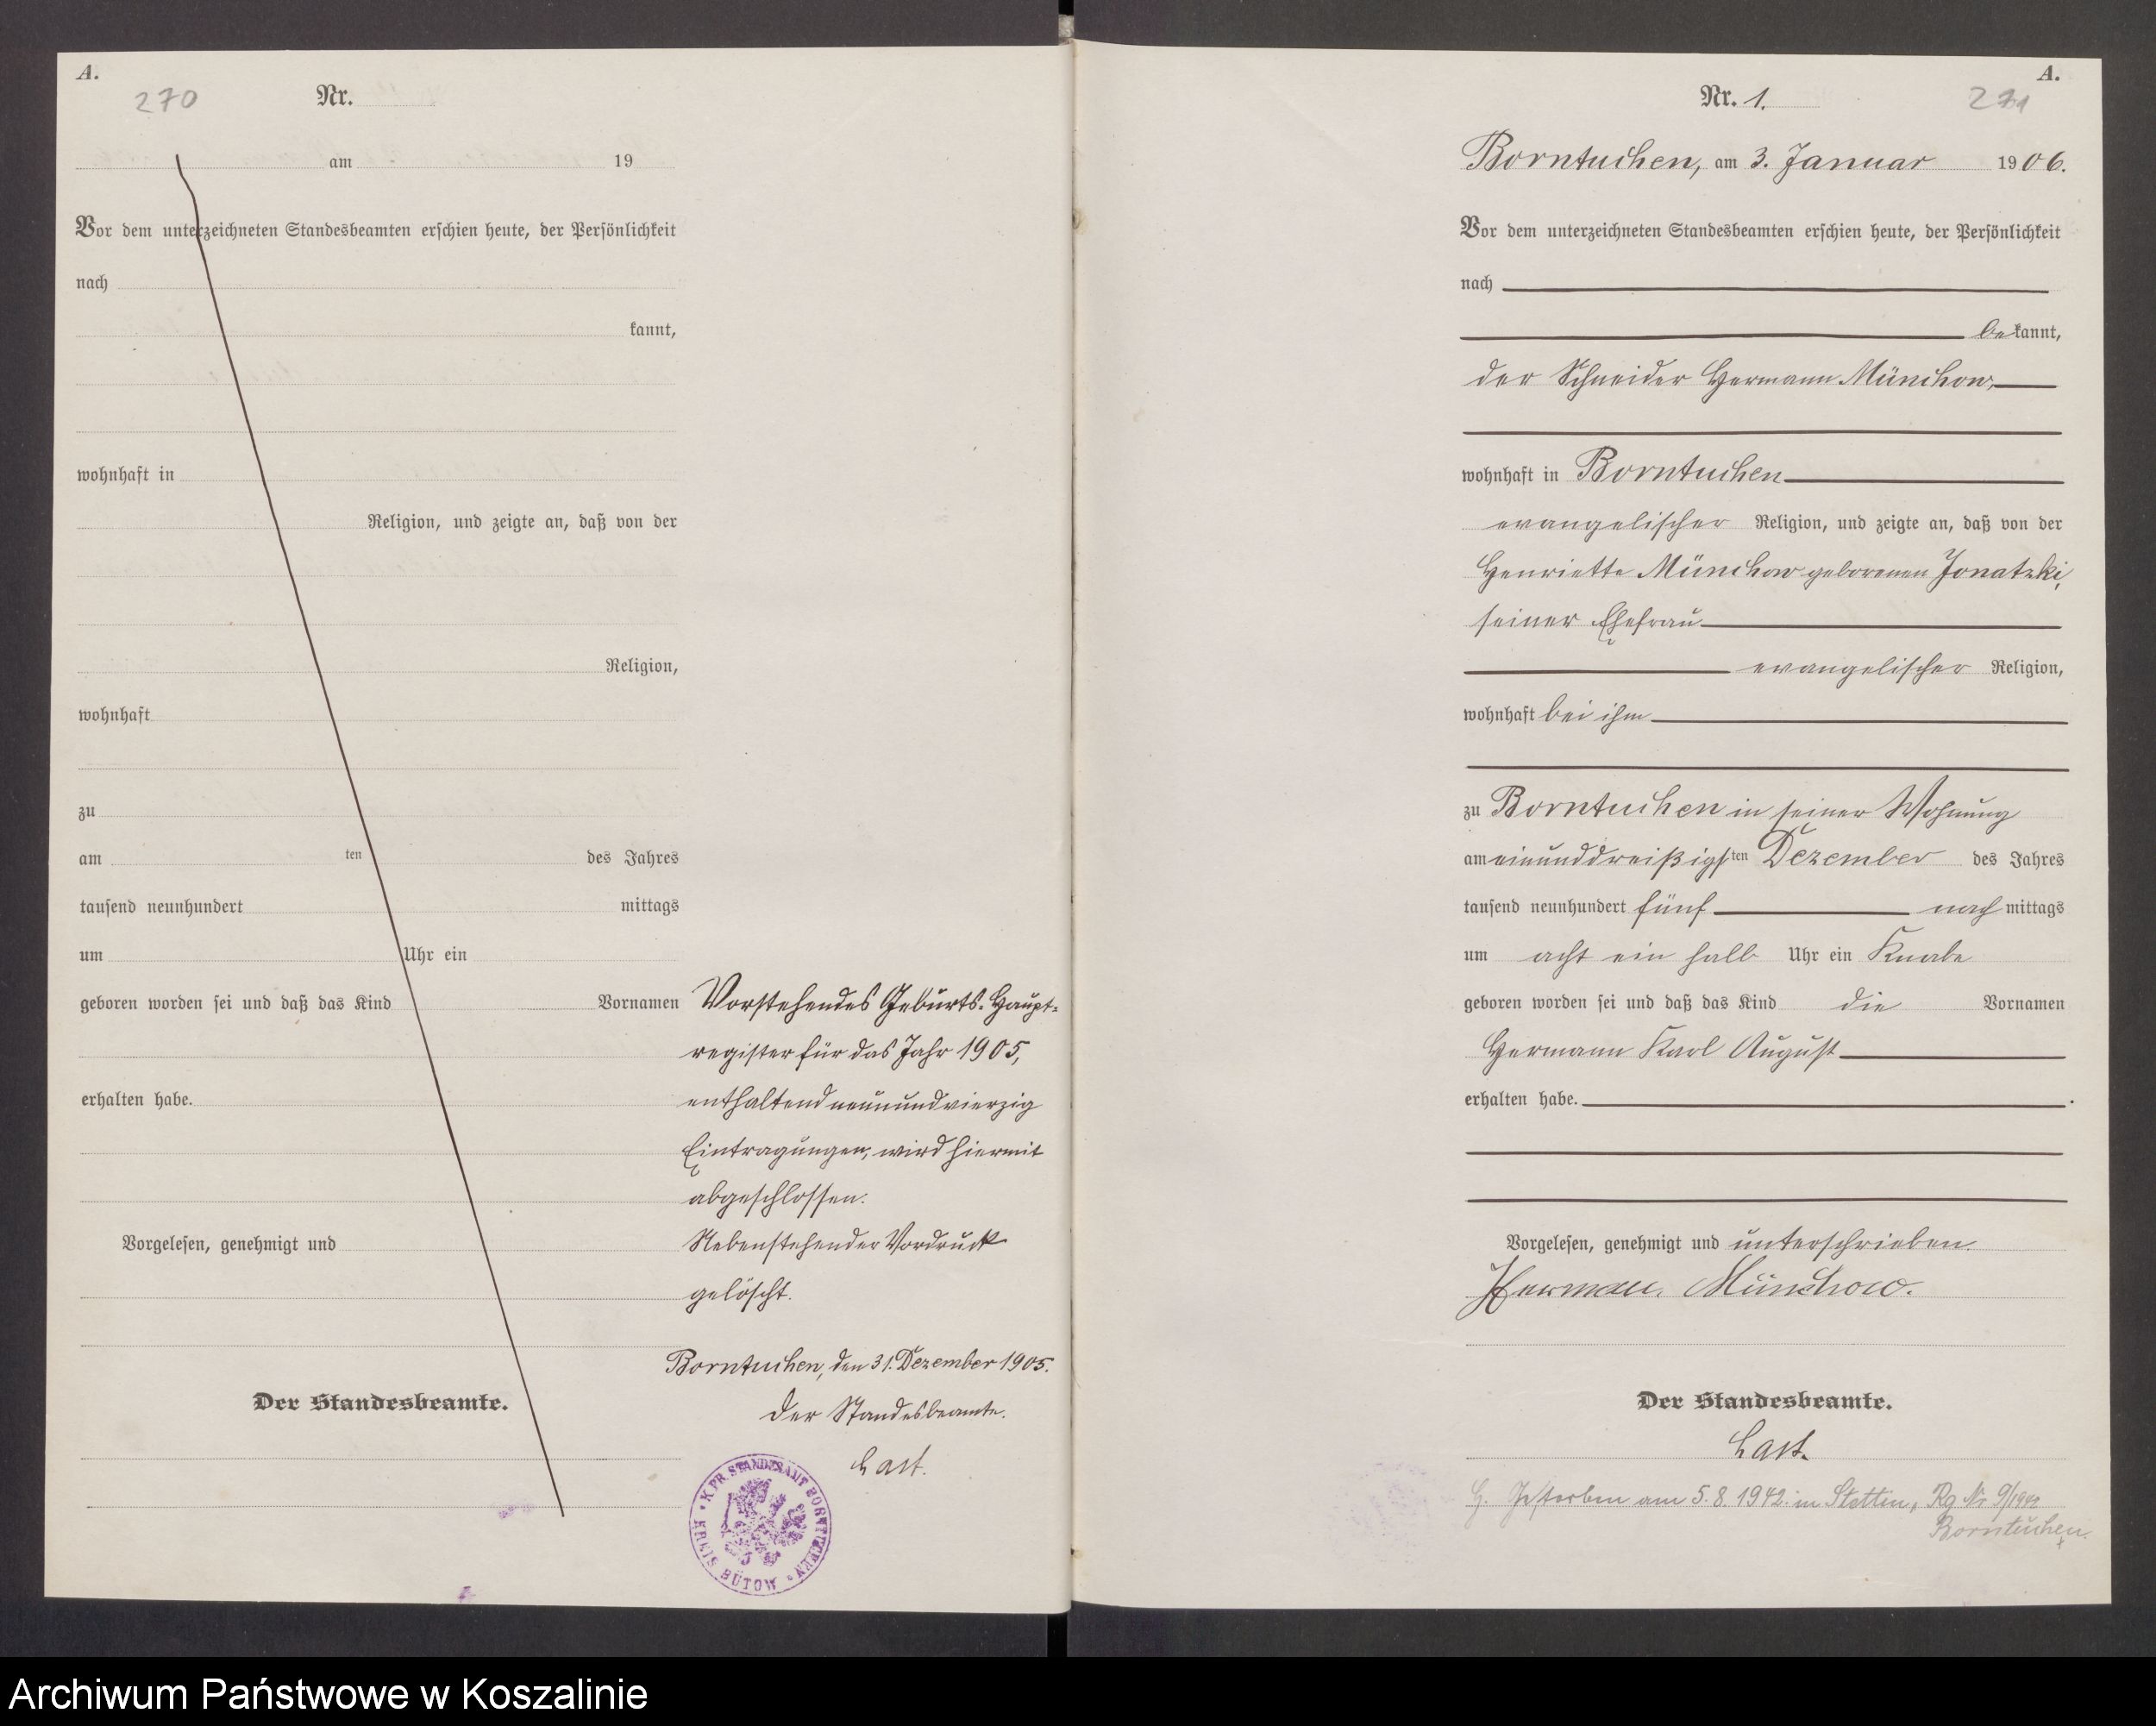 A.
270
Nr.
am 19
Vor dem unterzeichneten Standesbeamten erschien heute, der Persönlichkeit
nach
kannt,
wohnhaft in
Religion, und zeigte an, daß von der
Religion,
wohnhaft
zu
am ten des Jahres
tausend neunhundert mittags
um Uhr ein
geboren worden sei und daß das Kind Vornamen
erhalten habe.
Vorgelesen, genehmigt und
Der Standesbeamte.
Vorstehendes Geburts-Haupt-
register für das Jahr 1905,
enthaltend neunundvierzig
Eintragungen, wird hiermit
abgeschlossen.
Nebenstehender Vordruck
gelöscht.
Borntuchen, den 31. Dezember 1905.
Der Standesbeamte.
Last.
K. PR. STANDESAMT BORNTUCHEN
KREIS BÜTOW
A.
271
Nr. 1.
Borntuchen, am 3. Januar 1906.
Vor dem unterzeichneten Standesbeamten erschien heute, der Persönlichkeit
nach
bekannt,
der Schneider Hermann Münchow,
wohnhaft in Borntuchen
evangelischer Religion, und zeigte an, daß von der
Henriette Münchow geborenen Jonatzki,
seiner Ehefrau
evangelischer Religion,
wohnhaft bei ihm
zu Borntuchen in seiner Wohnung
am einunddreißigsten Dezember des Jahres
tausend neunhundert fünf nachmittags
um acht ein halb Uhr ein Knabe
geboren worden sei und daß das Kind die Vornamen
Hermann Karl August
erhalten habe.
Vorgelesen, genehmigt und unterschrieben.
Herman. Münchow.
Der Standesbeamte.
Last.
G. Gestorben am 5.8.1942 in Stettin, Rg Nr 9/1942
Borntuchen.
Archiwum Państwowe w Koszalinie